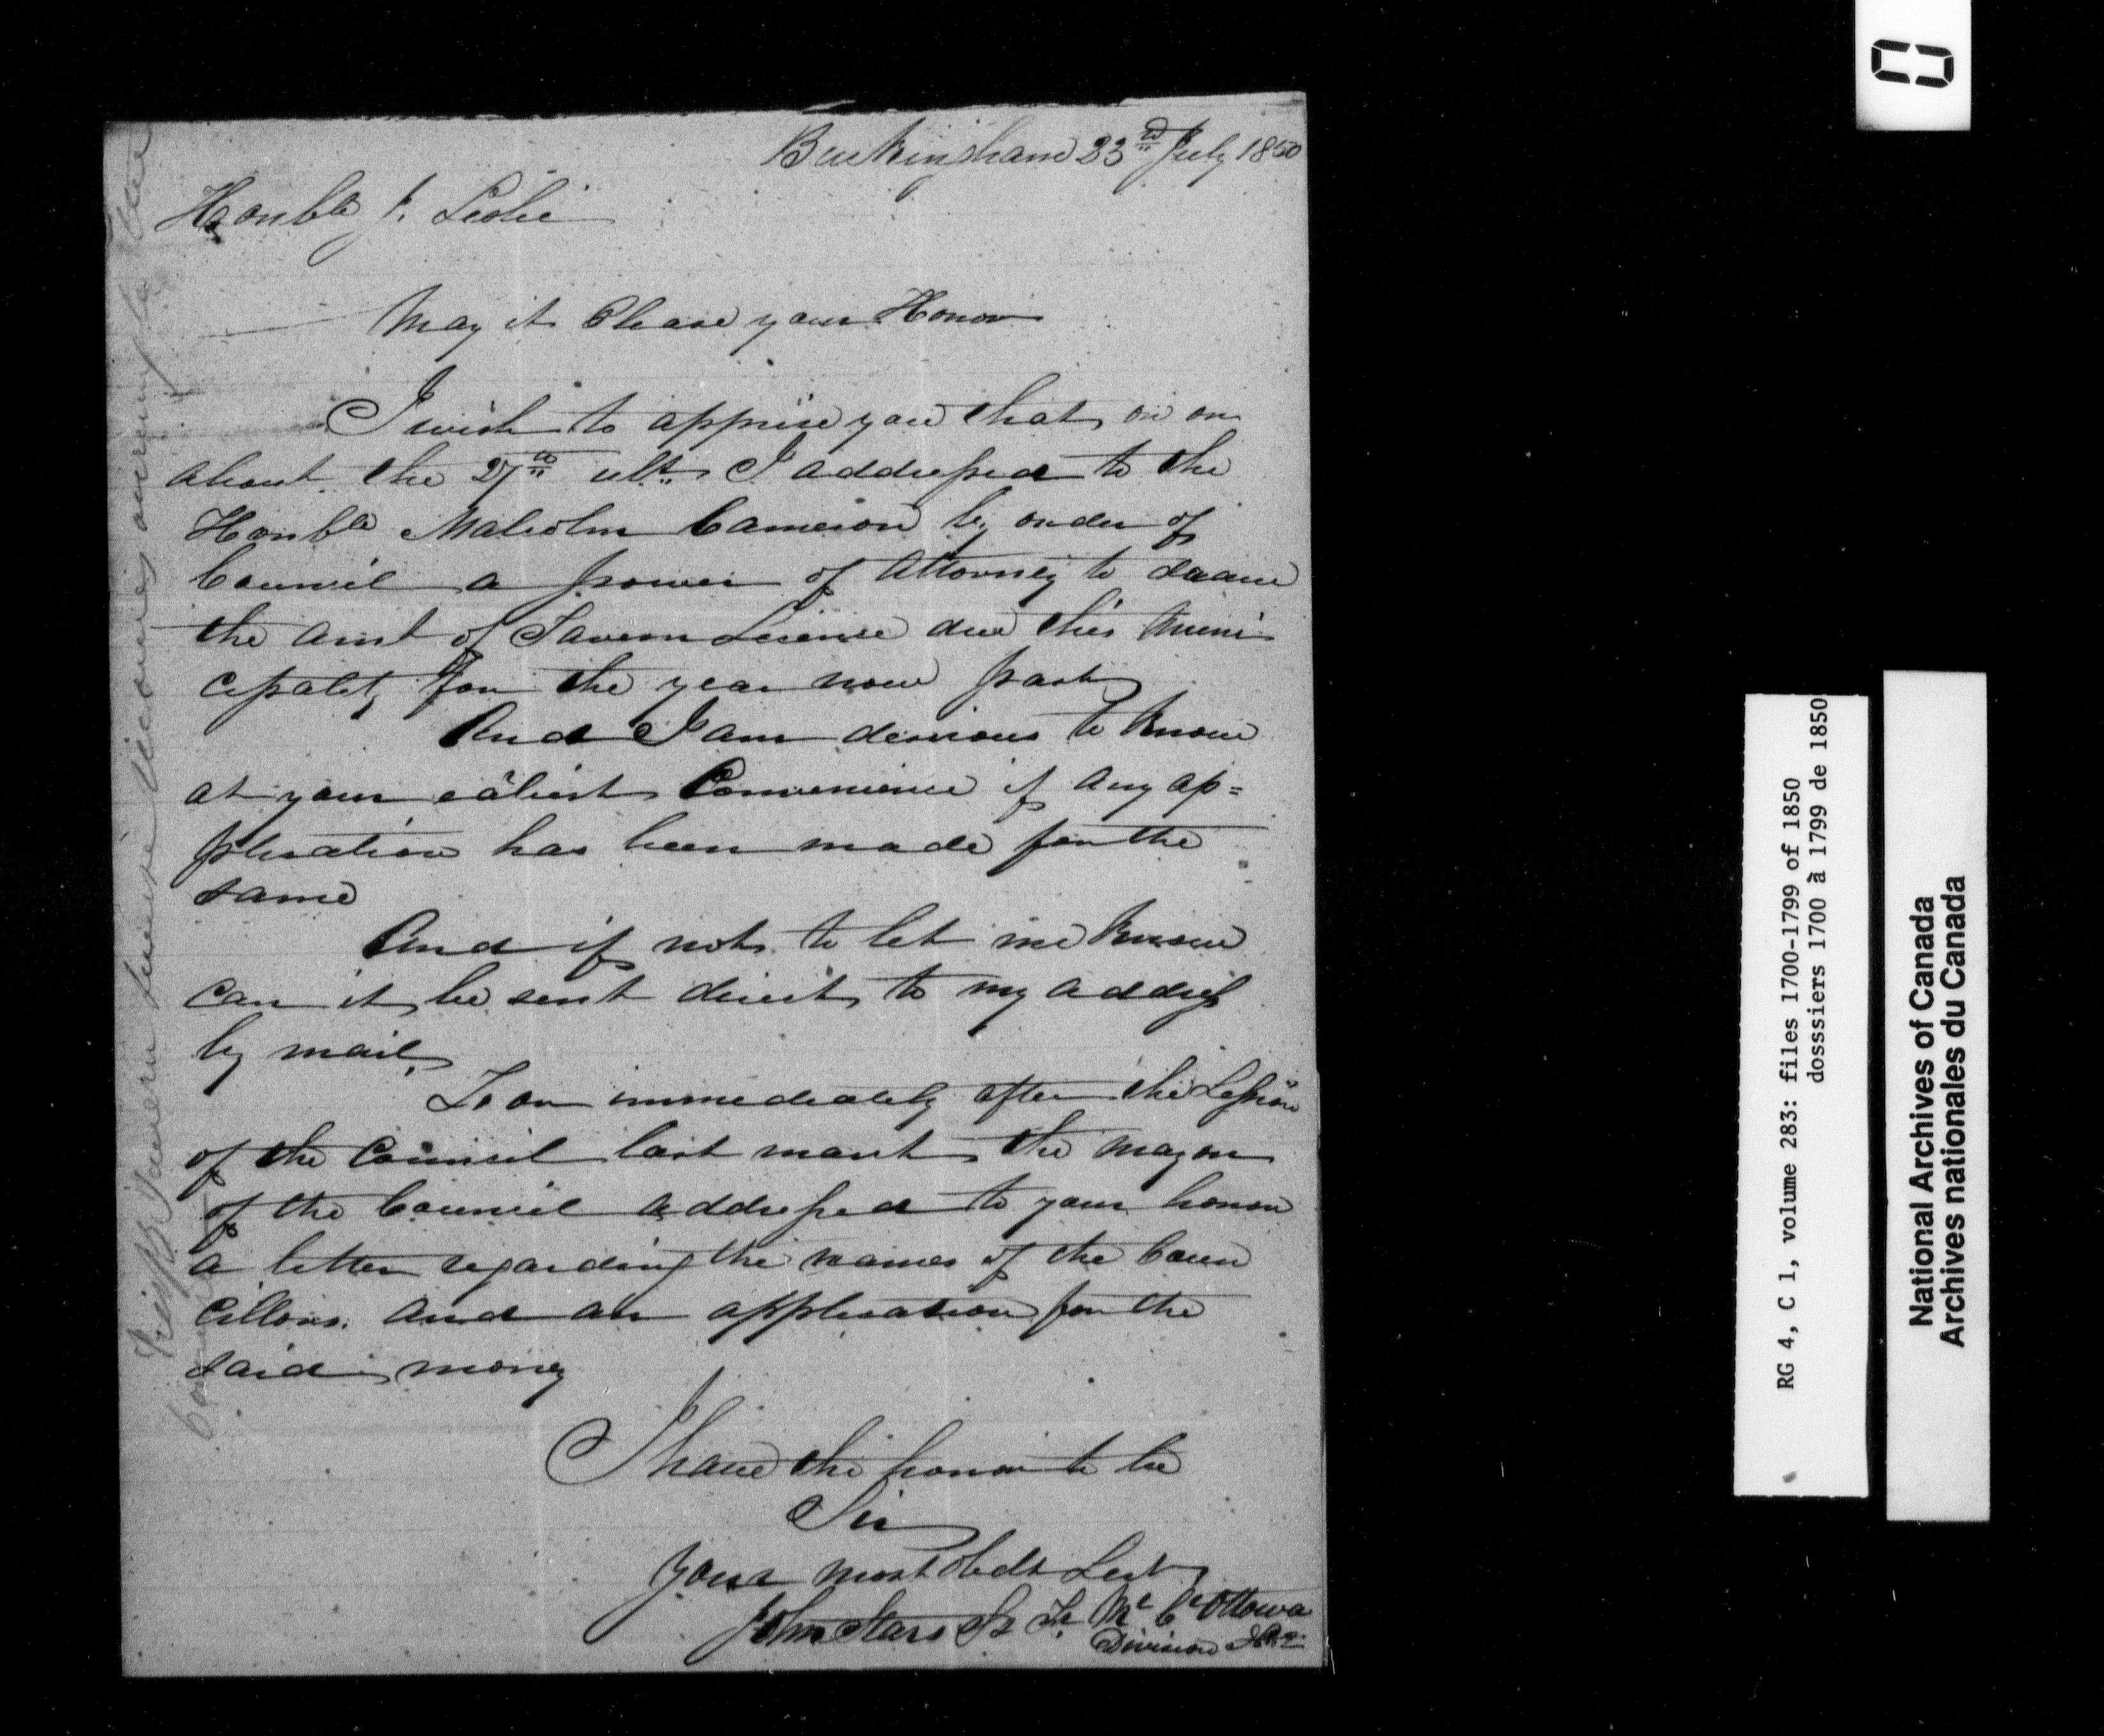 Buckingham 23rd July 1850
Honble J. Leslie
May it Please your Honor
I wish to apprise you that on or
about the 27th ult. I addressed to the
Honble Malcolm Cameron by order of
Council a power of Attorney to draw
the amt of Tavern License due this Muni
cipality for the year now past
And I am desirous to know
at your earliest Convenience if any ap=
plication has been made for the
same
And if not to let me know
can it be sent direct to my address
by mail.
For immediately after the Session
of the Council last mont the mayor
of the Council addressed to your honor
a letter regarding the names of the Coun
cillors. and an application for the
said money
I have the honor to be
Sir
your most obedt Svt
John Starrs Sec Tr M C Ottawa
Division
Tavern License
0
RG 4, C 1, volume 283: files 1700-1799 of 1850
dosssiers 1700 à 1799 de 1850
National Archives of Canada
Archives nationales du Canada